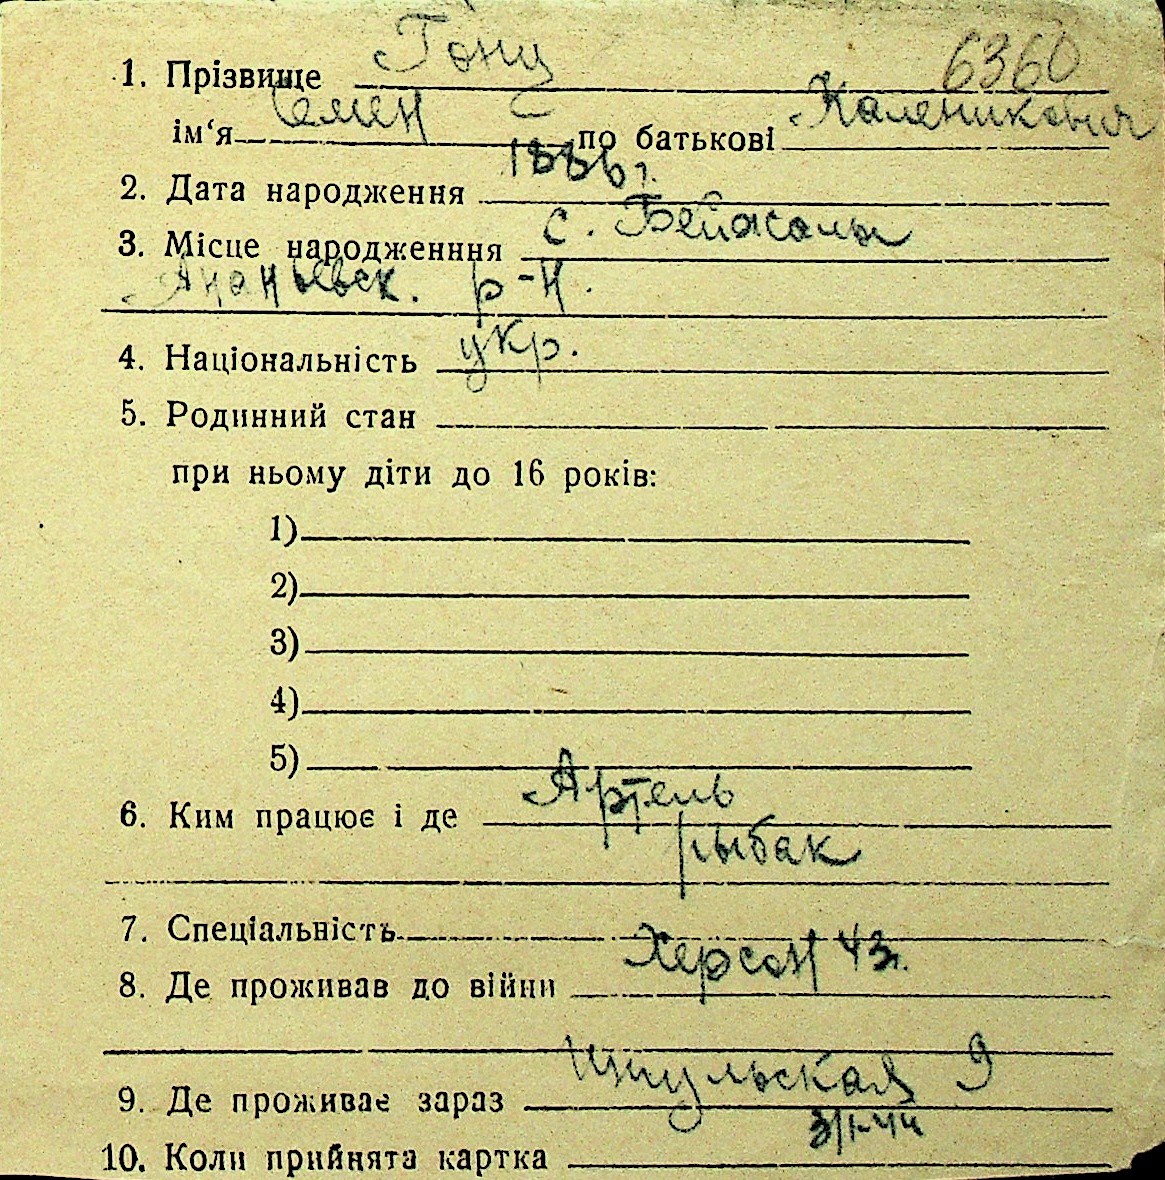 1. Прізвище Гонц 6360
ім‘я Семен по батькові Каленикович
2. Дата народження 1886 г.
3. Місце народженння с.
Ананьевск. р-н.
4. Національність укр.
5. Родинний стан
при ньому діти до 16 років:
1)
2)
3)
4)
5)
6. Ким працює і де Артель
рыбак
7. Спеціальність
8. Де проживав до війни Херсон 43г.
9. Де проживає зараз 9
10. Коли прийнята картка 3/I-44